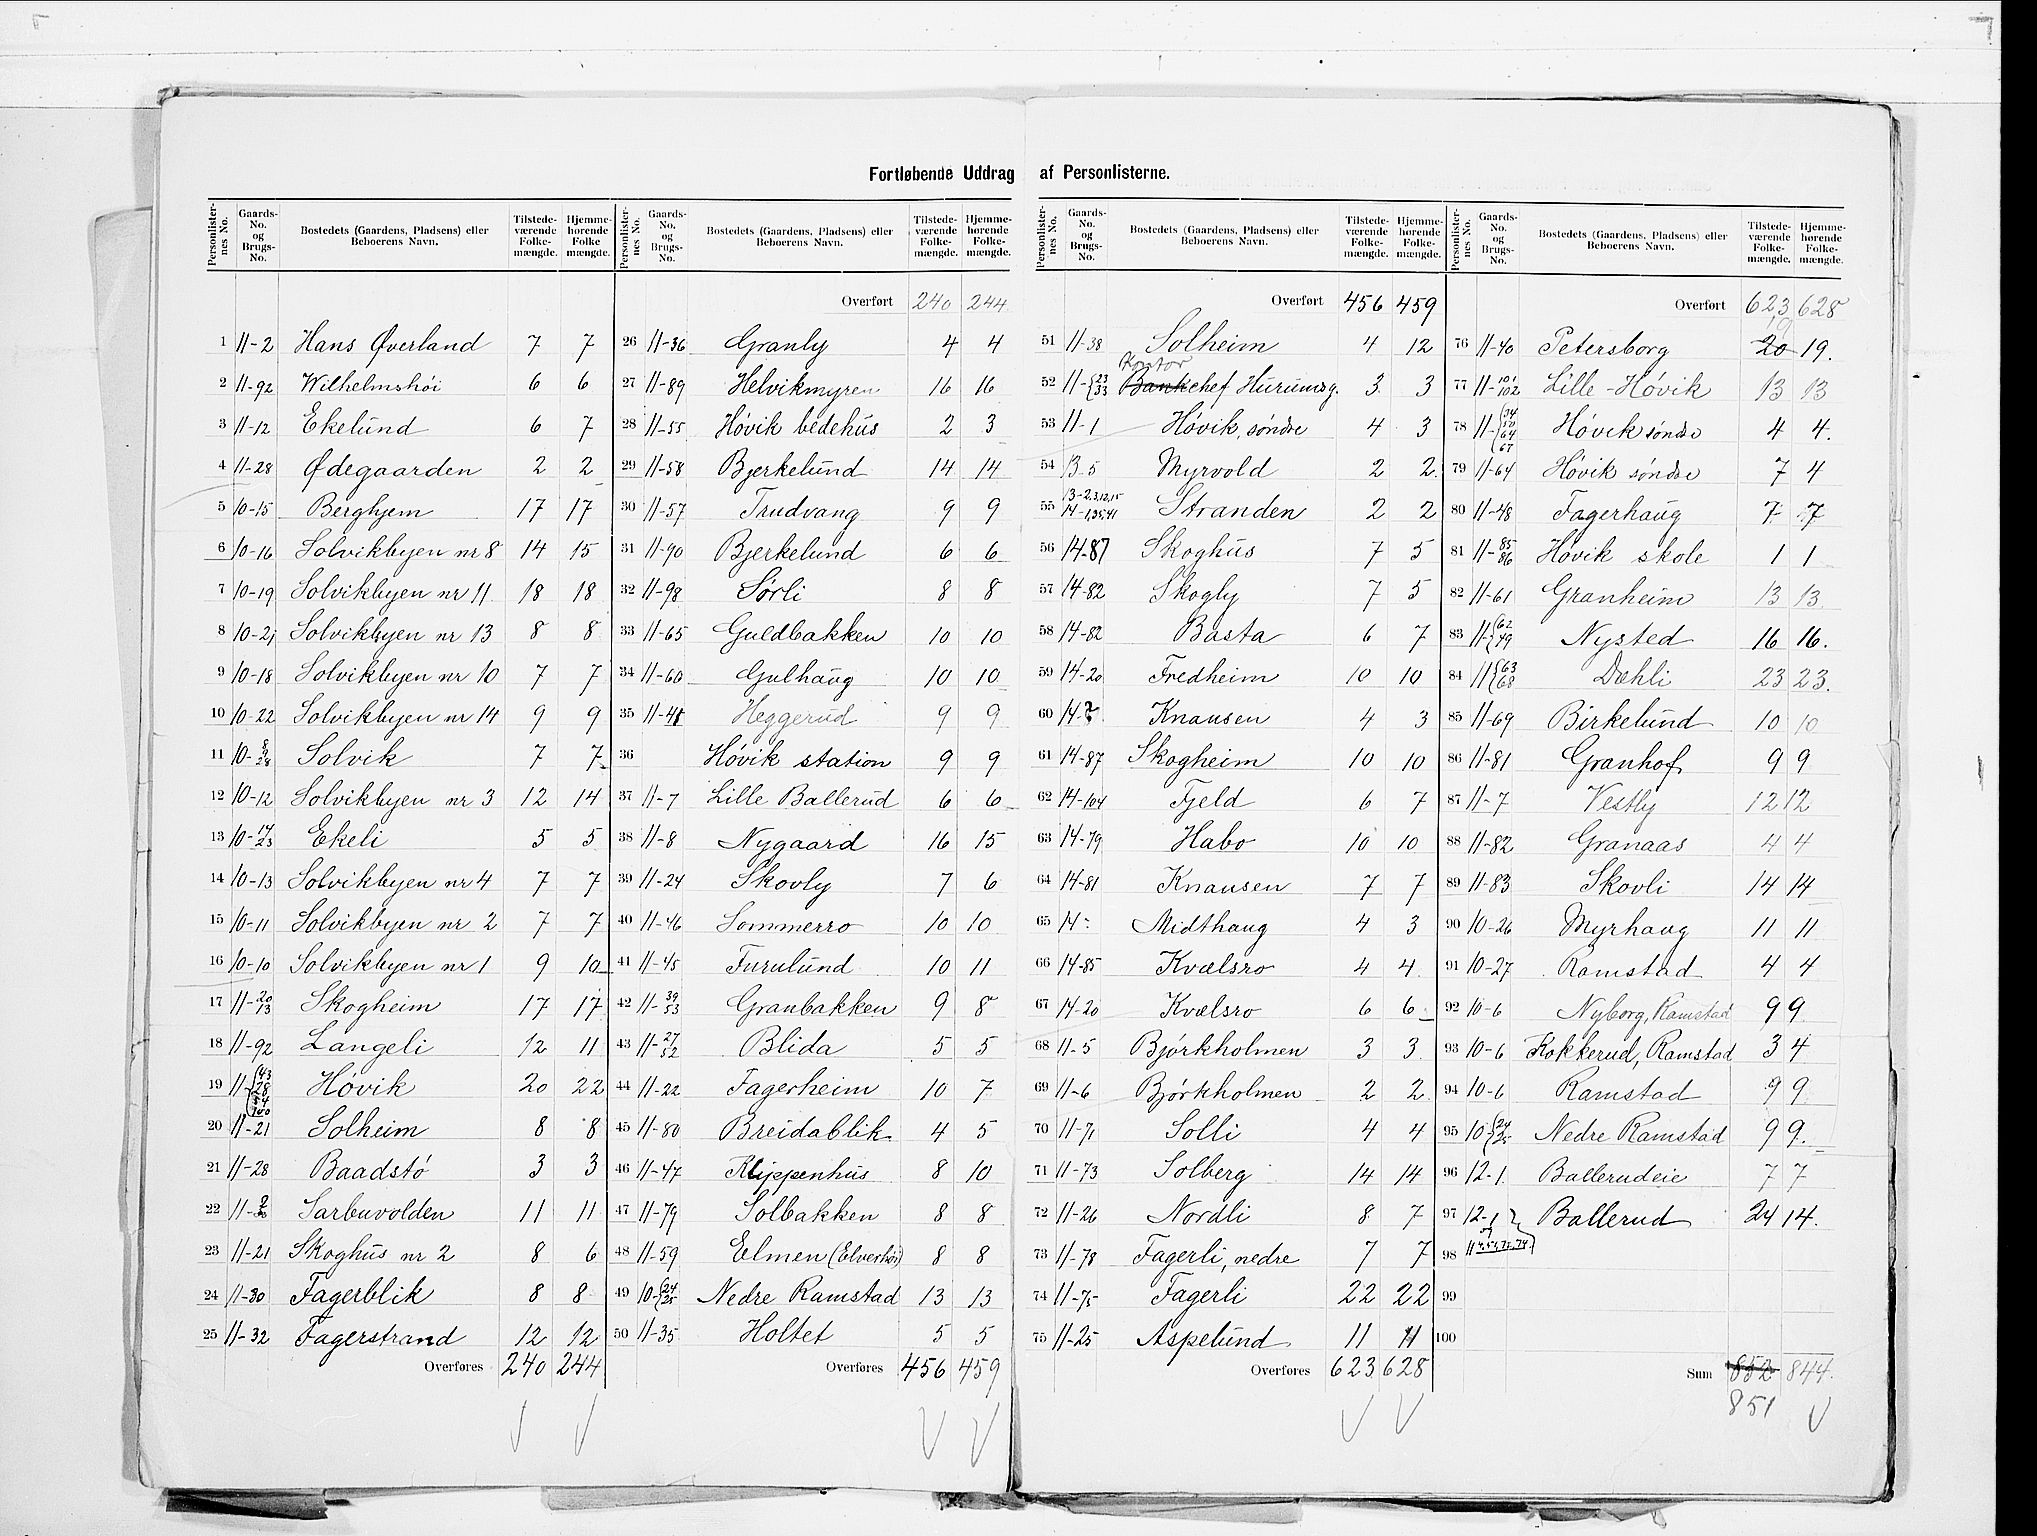 Fortløbende Uddrag af Personlisterne.
Personlister-nes No. Gaards-No. og Brugs-No. Bostedets (Gaardens, Pladsens) eller Beboerens Navn. Tilstede-værende Folke-mængde. Hjemme-hørende Folke mængde.
1 11-2 Hans Øverland 7 7
2 11-92 Wilhelmshöi 6 6
3 11-12 Ekelund 6 7
4 11-28 Ødegaarden 2 2
5 10-15 Berghjem 17 17
6 10-16 Solvikbyen nr 8 14 15
7 10-19 Solvikbyen nr 11 18 18
8 10-21 Solvikbyen nr 13 8 8
9 10-18 Solvikbyen nr 10 7 7
10 10-22 Solvikbyen nr 14 9 9
11 10- Solvik 7 7
12 10-12 Solvikbyen nr 3 12 14
13 10-17 23 Ekeli 5 5
14 10-13 Solvikbyen nr 4 7 7
15 10-11 Solvikbyen nr 2 7 7
16 10-10 Solvikbyen nr 1 9 10
17 11-20 13 Skogheim 17 17
18 11-92 Langeli 12 11
19 11- Høvik 20 22
20 11-21 Solheim 8 8
21 11-28 Baadstö 3 3
22 11- Sarbuvolden 11 11
23 11-21 Skoghus nr 2 8 6
24 11-30 Fagerblik 8 8
25 11-32 Fagerstrand 12 12
Overføres 240 244
Personlister-nes No. Gaards-No. og Brugs-No. Bostedets (Gaardens, Pladsens) eller Beboerens Navn. Tilstede-værende Folke-mængde. Hjemme-hørende Folke-mængde.
Overført 240 244
26 11-36 Granly 4 4
27 11-89 Helvikmyren 16 16
28 11-55 Høvik bedehus 2 3
29 11-58 Bjerkelund 14 14
30 11-57 Trudvang 9 9
31 11-90 Bjerkelund 6 6
32 11-98 Sørli 8 8
33 11-65 Guldbakken 10 10
34 11-60 Gulhaug 10 10
35 11- Heggerud 9 9
36 Høvik station 9 9
37 11-7 Lille Ballerud 6 6
38 11-8 Nygaard 16 15
39 11-24 Skovly 7 6
40 11-46 Sommerro 10 10
41 11-45 Furulund 10 11
42 11-39 53 Granbakken 9 8
43 11-27 52 Blida 5 5
44 11-22 Fagerheim 10 7
45 11-80 Breidablik 4 5
46 11-47 Klippenhus 8 10
47 11-79 Solbakken 8 8
48 11-59 Elmen (Elverhöi) 8 8
49 10-{24 25 Nedre Ramstad 13 13
50 11-35 Holtet 5 5
Overføres 456 459
Personlister-nes No. Gaards-No. og Brugs-No. Bostedets (Gaardens, Pladsens) eller Beboerens Navn. Tilstede-værende Folke-mængde. Hjemme-hørende Folke-mængde.
Overført 456 459
51 11-38 Solheim 4 12
Kontor
52 11-{23 33 Bankchef Hurumsg. 3 3
53 11-1 Høvik, søndre 4 3
54 13-5 Myrvold 2 2
55 13-2,3,12,15 14-1,35,41 Stranden 2 2
56 14-87 Skoghus 7 5
57 14-82 Skogly 7 5
58 14-82 Basta 6 7
59 14-20 Fredheim 10 10
60 14- Knausen 4 3
61 14-87 Skogheim 10 10
62 14-104 Fjeld 6 7
63 14-79 Habo 10 10
64 14-81 Knausen 7 7
65 14- Midthaug 4 3
66 14-85 Kvælsro 4 4
67 14-20 Kvælsro 6 6
68 11-5 Bjórkholmen 3 3
69 11-6 Bjórkholmen 2 2
70 11-71 Solli 4 4
71 11-73 Solberg 14 14
72 11-26 Nordli 8 7
73 11-78 Fagerli, nedre 7 7
74 11-75 Fagerli 22 22
75 11-25 Aspelund 11 11
Overføres 623 628
Personlister-nes No. Gaards-No. og Brugs-No. Bostedets (Gaardens, Pladsens) eller Beboerens Navn. Tilstede-værende Folke-mængde. Hjemme-hørende Folke-mængde.
Overført 623 628
19
76 11-40 Petersborg 20 19.
77 11-101 102 Lille-Hövik 13 13
78 11-{34 50 64 67 Hövik søndre 4 4.
79 11-64 Hövik søndre 7 4
80 11-48 Fagerhaug 7 7
81 11-85 86 Høvik skole 1 1
82 11-61 Granheim 13 13
83 11-{62 49 Nysted 16 16.
84 11{63 68 Dæhli 23 23.
85 11-69 Birkelund 10 10
86 11-81 Granhof 9 9
87 11-7 Vestly 12 12
88 11-82 Granaas 4 4
89 11-83 Skovli 14 14
90 10-26 Myrhaug 11 11
91 10-27 Ramstad 4 4
92 10-6 Nyborg, Ramstad 9 9
93 10-6 Kokkerud, Ramstad 3 4
94 10-6 Ramstad 9 9
95 10{24 25 Nedre Ramstad 9 9.
96 12-1 Ballerudeie 7 7
97 12-1 Ballerud 24 14.
98
99
100
Sum 852 844.
851